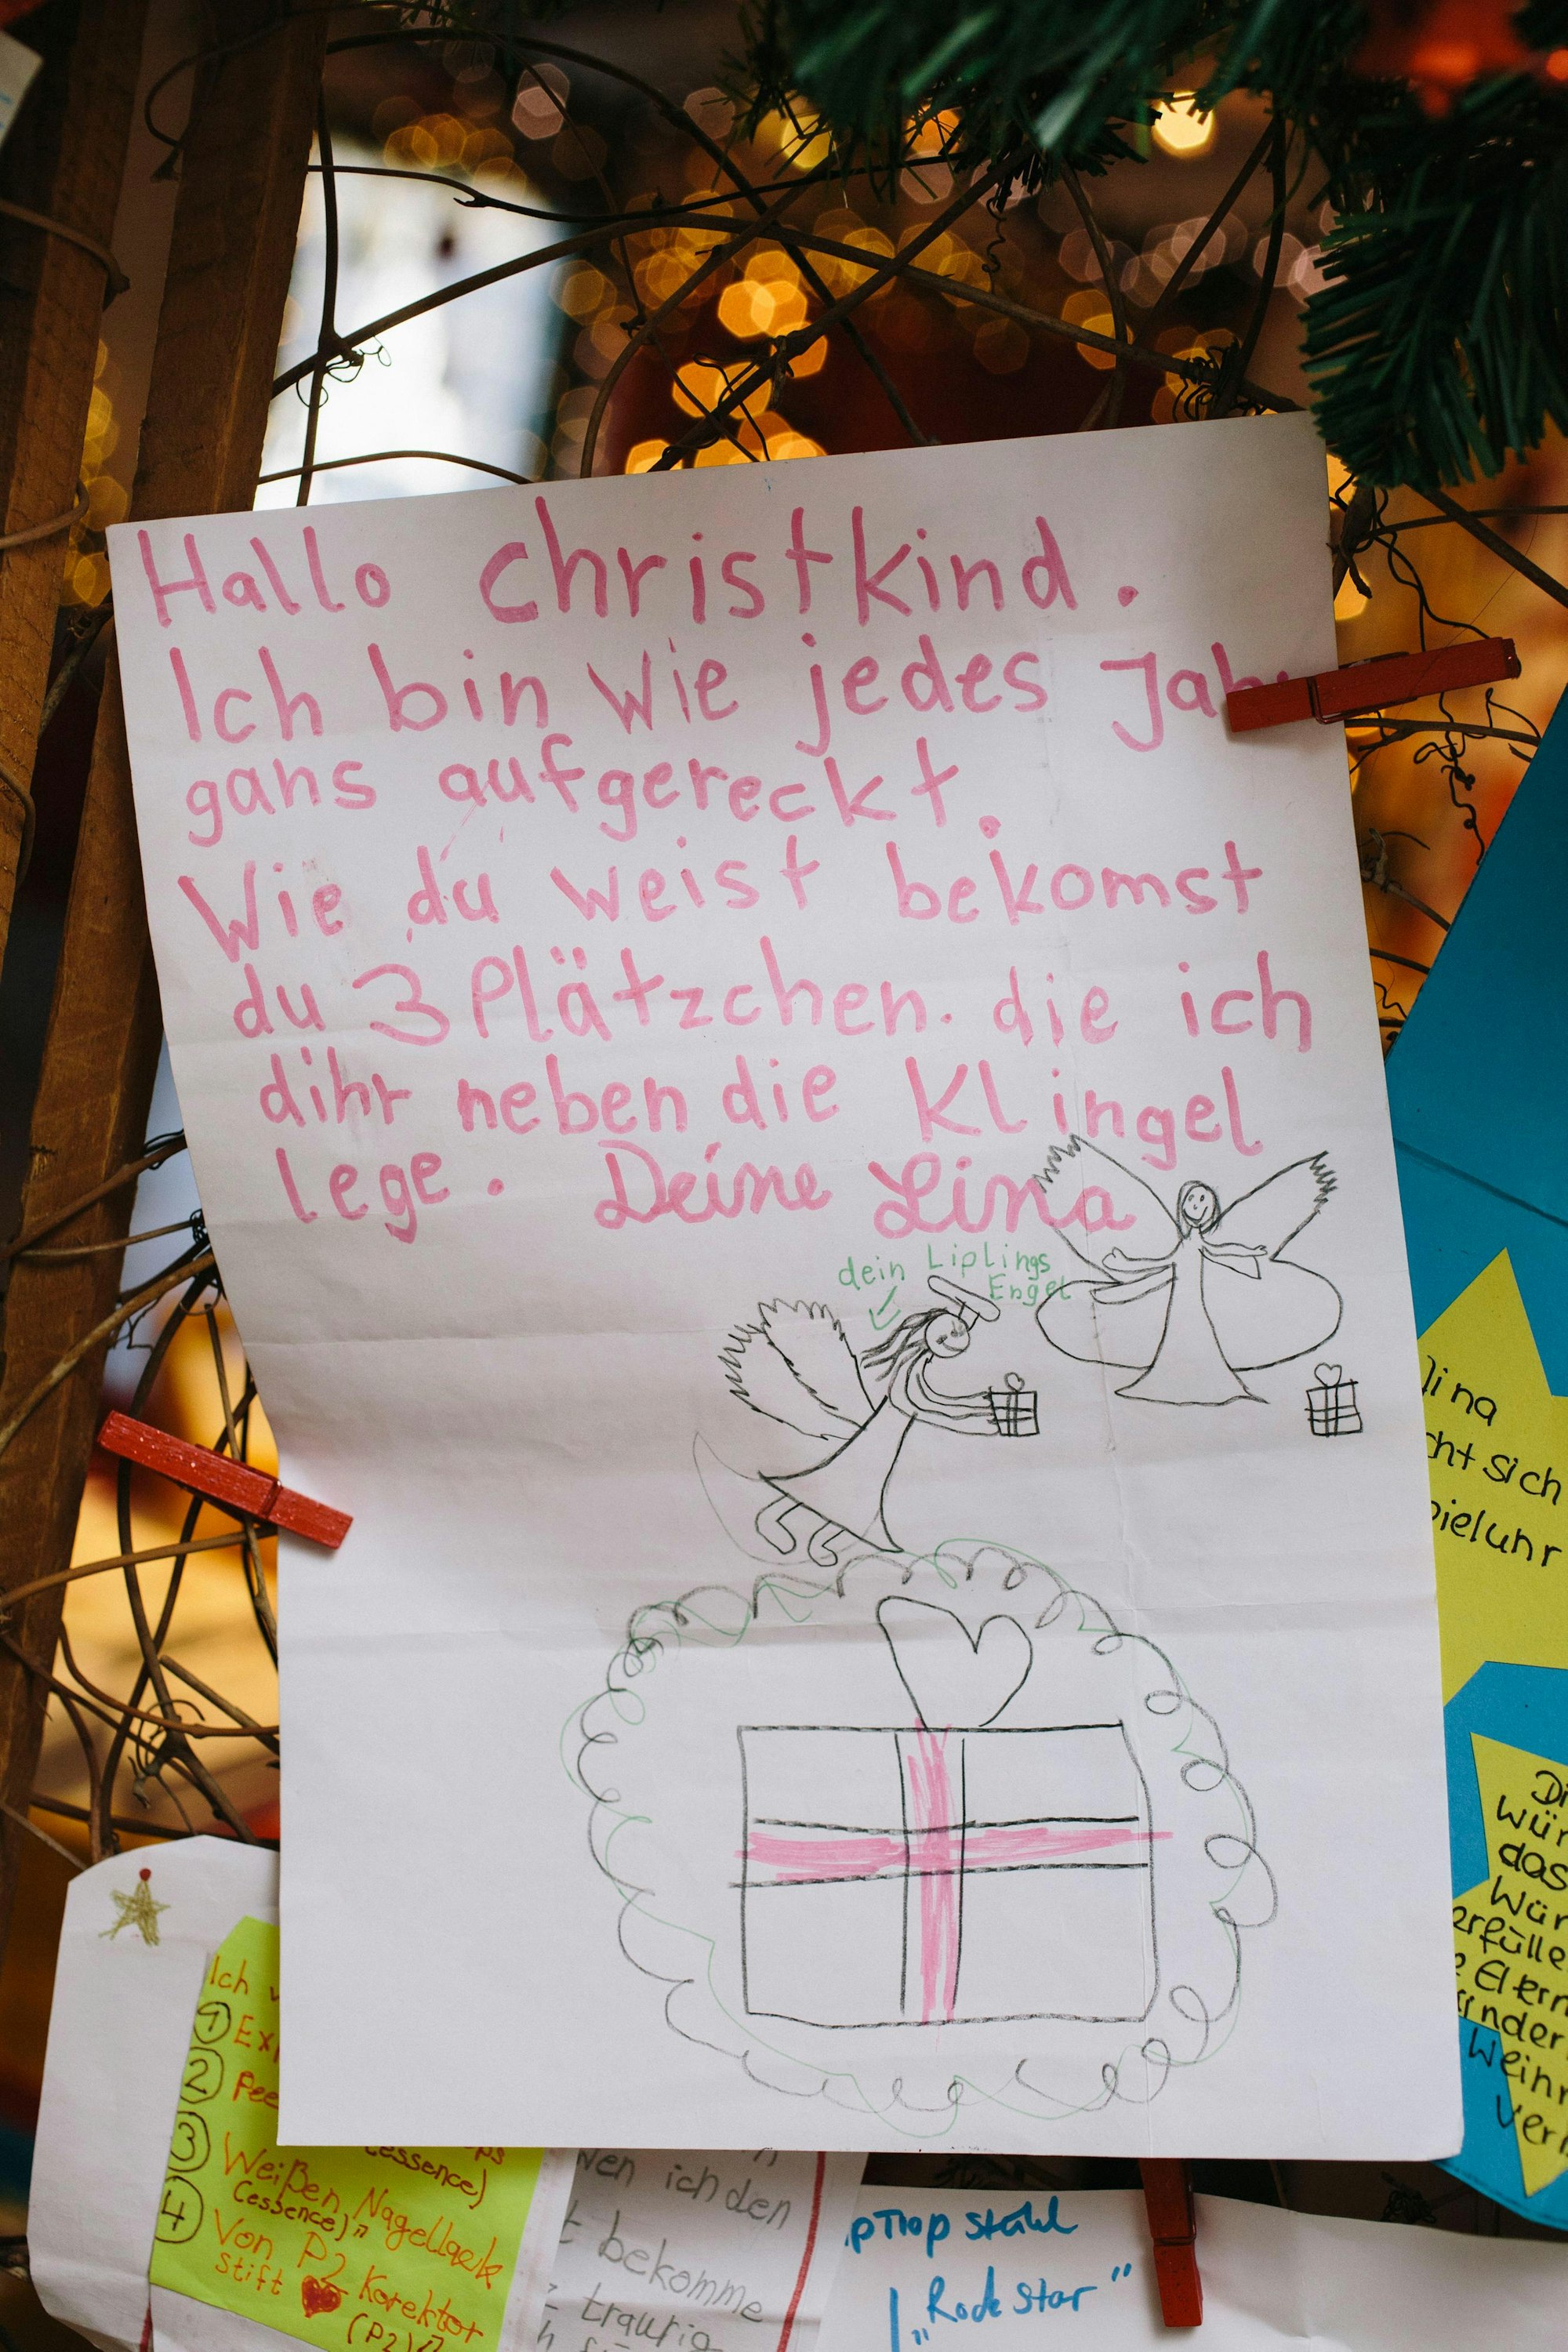 Hallo christkind.
Ich bin wie jedes Jahr
gans aufgereckt.
Wie du weist bekomst
du 3 Plätzchen. die ich
dihr neben die Klingel
lege. Deine Lina
dein Liplings
Engel
lina
cht sich
pieluhr
Di
Wür
das
Wür
erfülle
Eltern
Kinder
Weihn
vern
Ich
1 Ex
2 Pee
ps
(essence)
3 Weißen Nagellack
(essence)"
4 Von P2 Korektor
stift
(P2)"
ich den
bekomme
traurig
pTrop stuhl
"Rock Star"